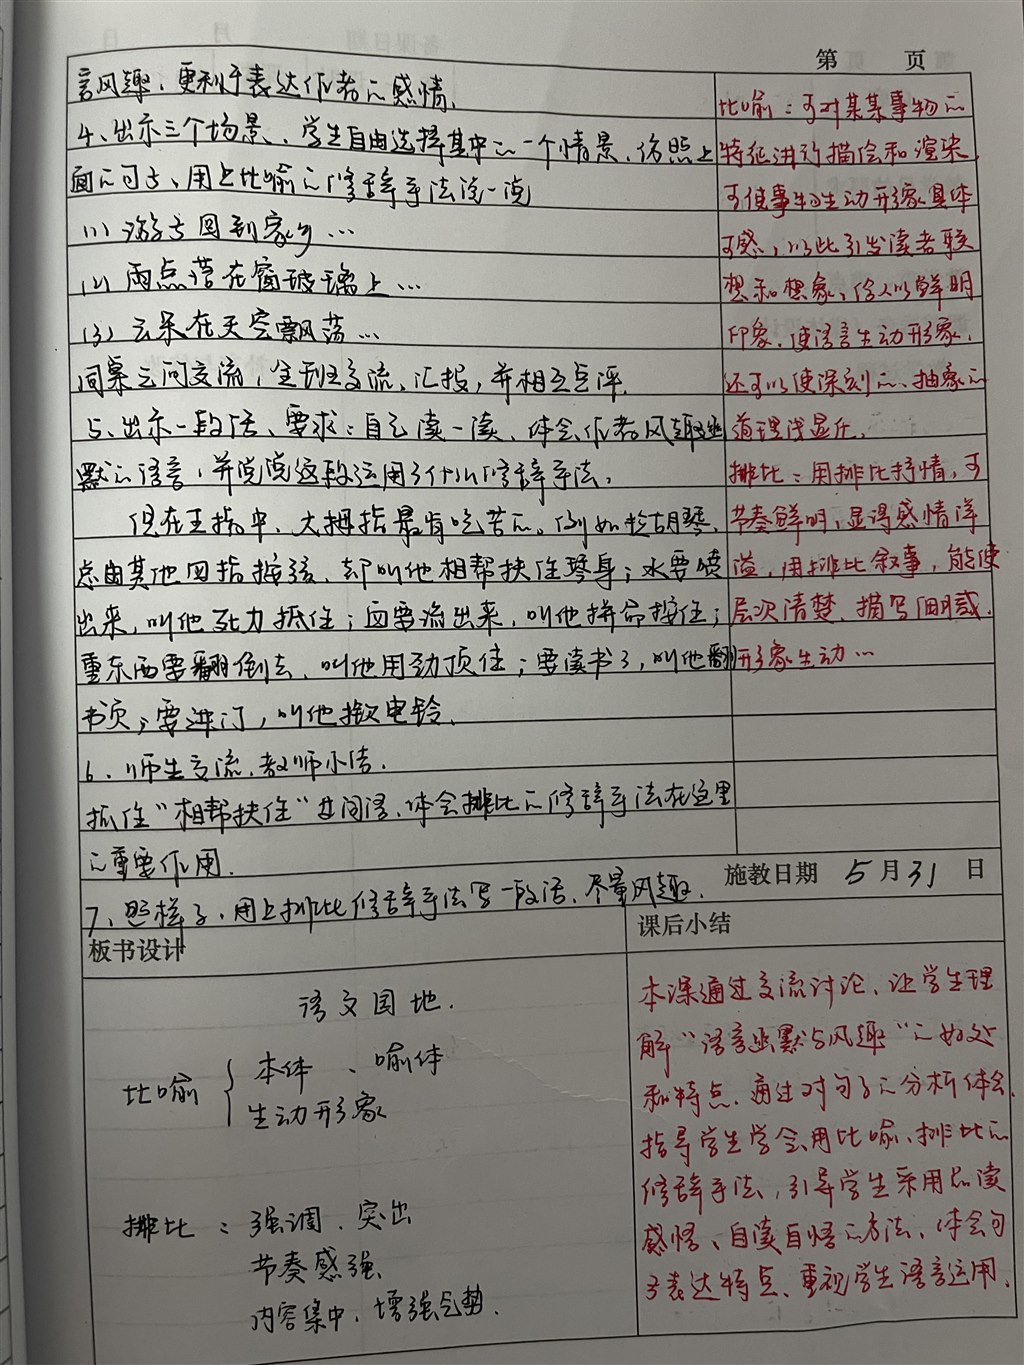 第 页
言风趣,更利于表达作者的感情.
4、出示三个场景、学生自由选择其中的一个情景、仿照上
面的句子、用上比喻的修辞手法说一说
(1) 游子回到家乡…
(2) 雨点落在窗玻璃上…
(3) 云朵在天空飘荡…
同桌之间交流,全班交流、汇报,并相互点评.
5、出示一段话、要求:自己读一读、体会作者风趣幽
默的语言,并说说这段运用了什么修辞手法.
但在五指中、大拇指最肯吃苦的。例如拉胡琴,
总由其他四指按弦、却叫他相帮扶住琴身;水要喷
出来,叫他死力抵住;血要流出来,叫他拼命按住;
重东西要翻倒去、叫他用劲顶住;要读书了,叫他翻
书页;要进门,叫他揿电铃.
6、师生交流,教师小结.
抓住“相帮扶住”等词语、体会排比的修辞手法在这里
的重要作用.
7、照样子,用上排比修辞手法写一段话、尽量风趣.
比喻:可对某某事物的
特征进行描绘和渲染
可使事物生动形象具体
可感,以此引发读者联
想和想象,给人以鲜明
印象.使语言生动形象.
还可以使深刻的、抽象的
道理浅显化.
排比:用排比抒情,可
节奏鲜明,显得感情洋
溢,用排比叙事,能使
层次清楚、描写细腻.
形象生动…
施教日期 5月31日
板书设计
语文园地.
比喻 { 本体、喻体
生动形象
排比:强调、突出
节奏感强
内容集中,增强气势.
课后小结
本课通过交流讨论、让学生理
解“语言幽默与风趣”的好处
和特点.通过对句子的分析体会.
指导学生学会用比喻、排比的
修辞手法,引导学生采用品读
感悟、自读自悟的方法、体会句
子表达特点、重视学生语言运用.